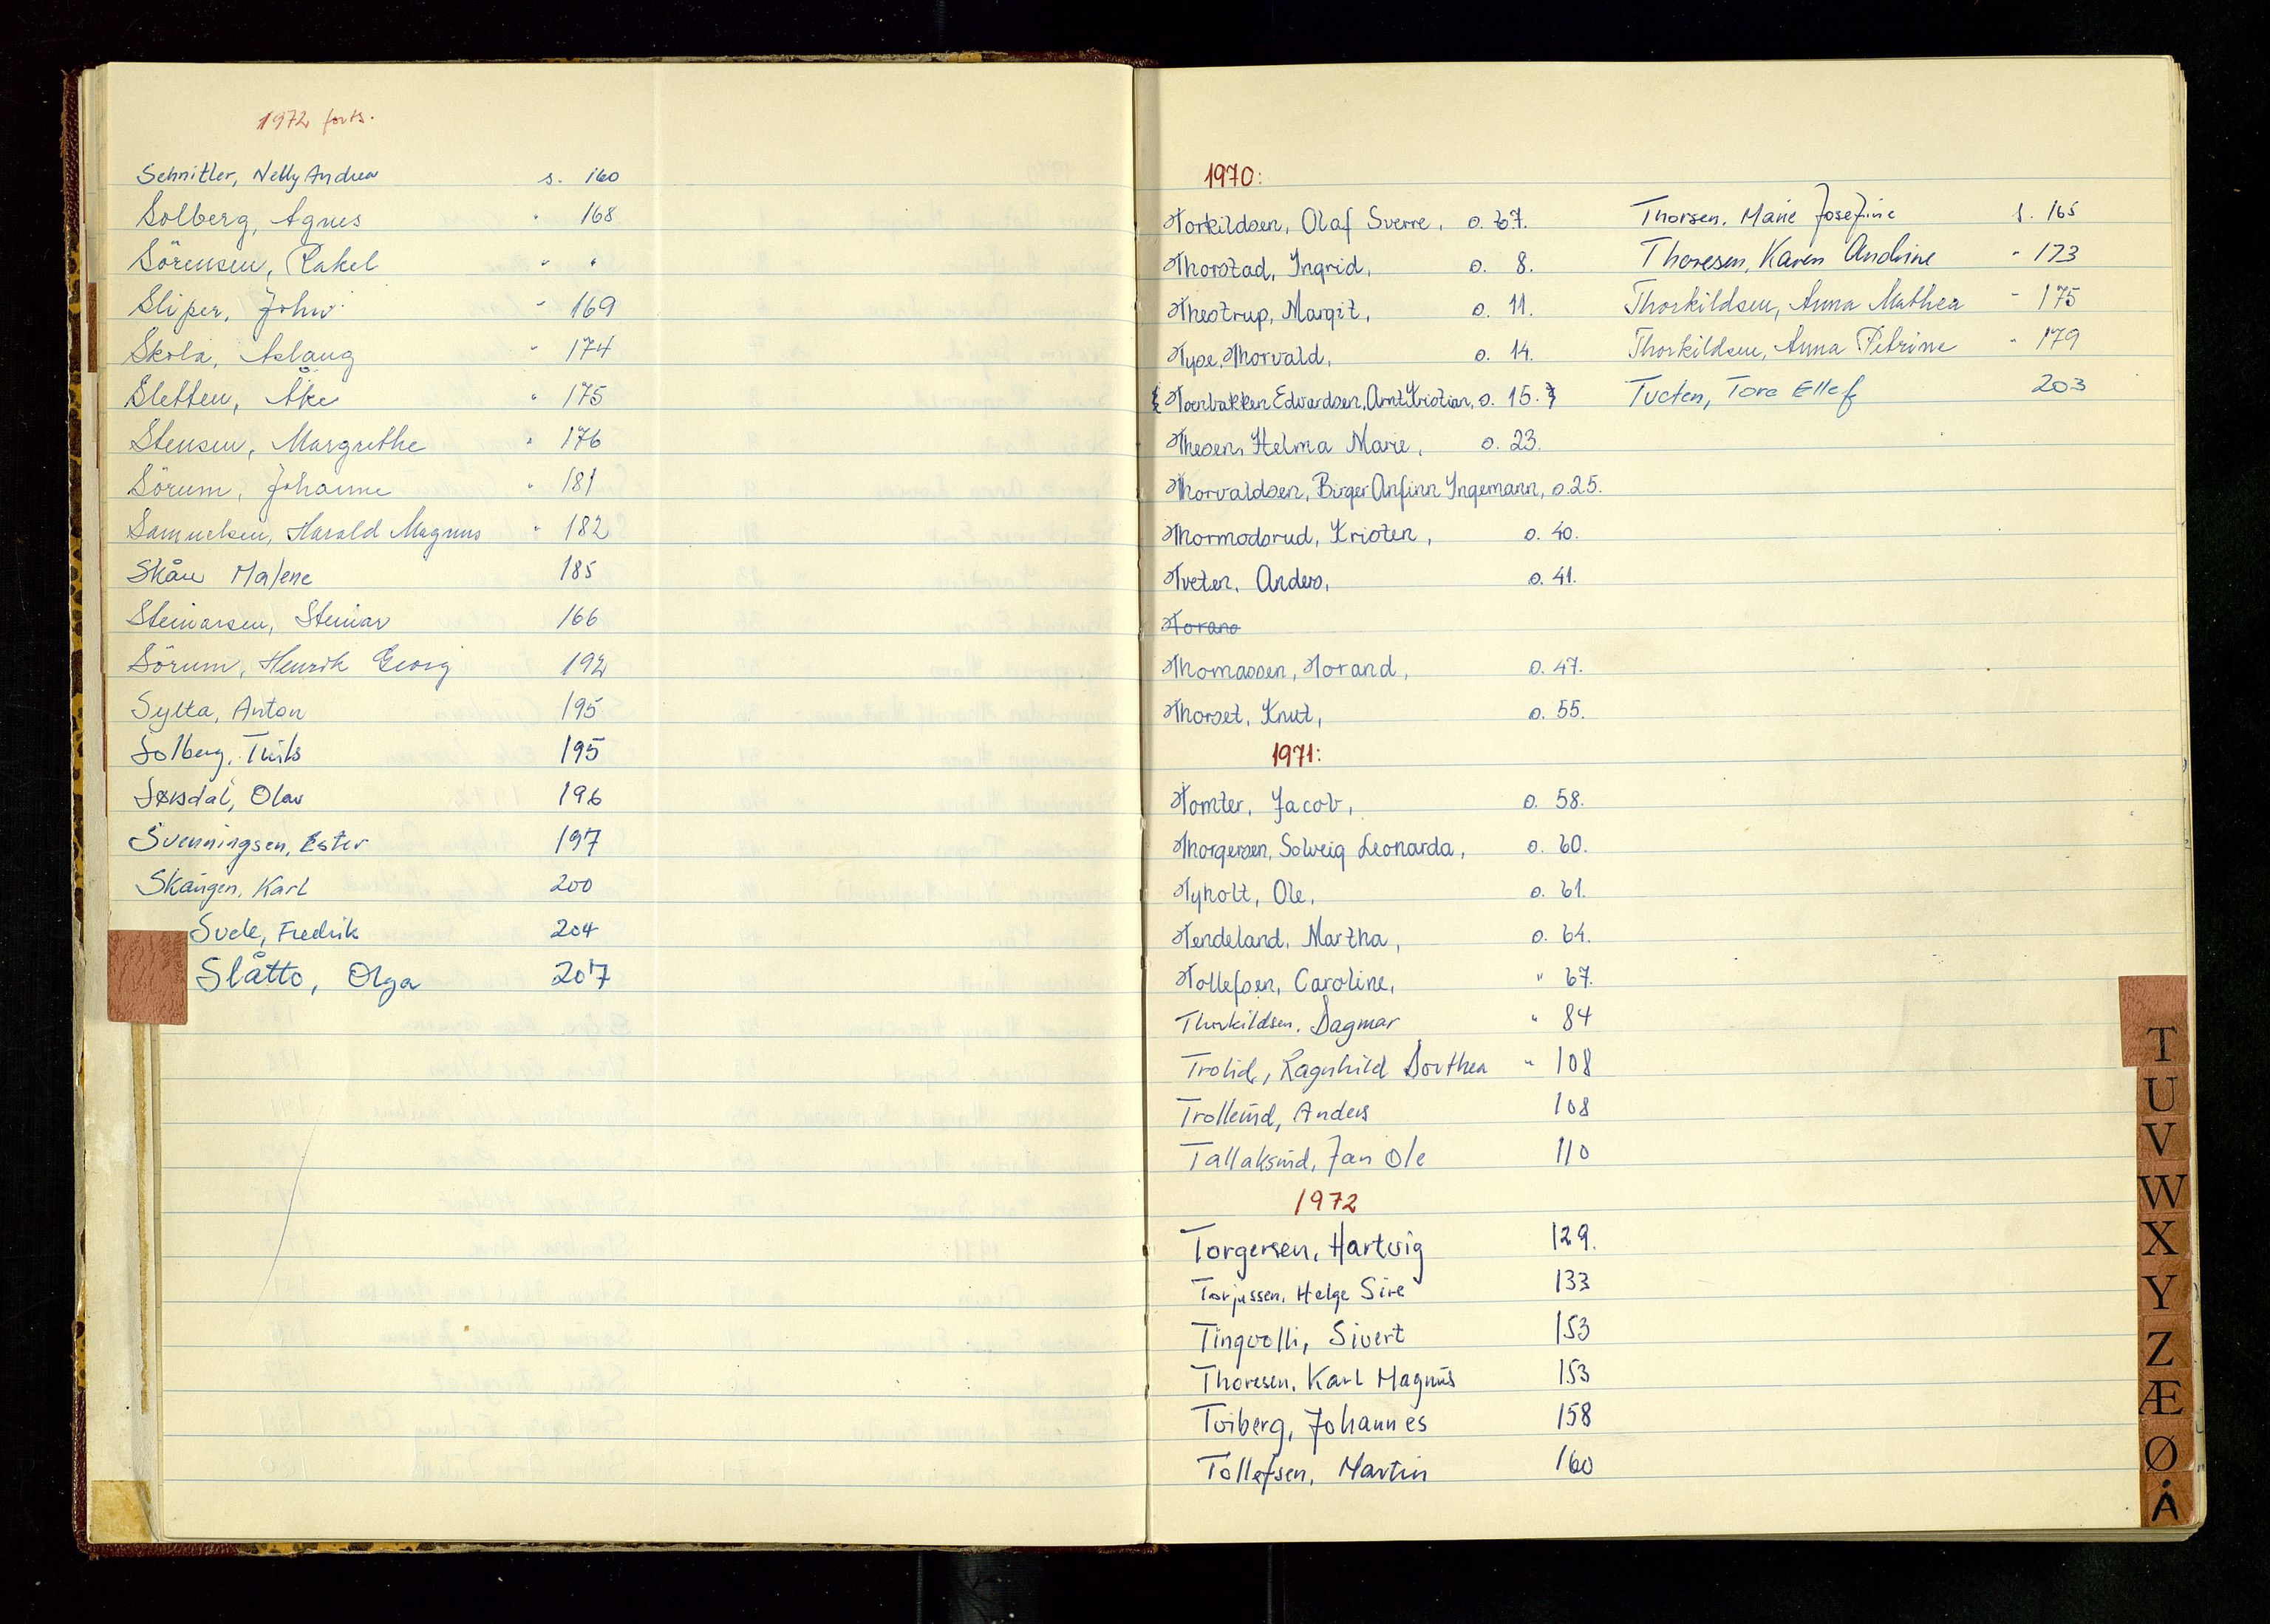 1972 forts.
Schnitler, Nelly Andrea s. 160
Solberg, Agnes " 168
Sörensen, Rakel " "
Sliper, John " 169
Skola, Aslaug " 174
Sletten, Åke " 175
Stensen, Margrethe " 176
Sörum, Johanne " 181
Samuelsen, Harald Magnus " 182
Skåre Malene 185
Steinarsen, Steinar 166
Sörum, Henrik Georg 192
Sylta, Anton 195
Solberg, 195
Sørsdal, Olav 196
Svenningsen, Ester 197
Skaugen, Karl 200
Svele, Fredrik 204
Slåtto, Olga 207
1970:
Torkildsen, Olaf Sverre, s. 67.
Thorstad, Ingrid, s. 8.
Thestrup, Margit, s. 11.
Type, Thorvald, s. 14.
Toenbakken Edvardsen, Arnt Kristian, s. 15.
Thesen, Helma Marie, s. 23.
Thorvaldsen, Birger Anfinn Ingemann, s. 25.
Thormodsrud, Kristen, s. 40.
Tveten, Anders, s. 41.
Torans
Thomassen, Torand, s. 47.
Thorset, Knut, s. 55.
1971:
Tomter, Jacob, s. 58.
Thorgersen, Solveig Leonarda, s. 60.
Tyholt, Ole, s. 61.
Tendeland, Martha, s. 64.
Tollefsen, Caroline, " 67.
Thorkildsen, Dagmar " 84
Trolid, Ragnhild Dorthea " 108
Trollerud, Anders 108
Tallaksrud, Jan Ole 110
1972
Torgersen, Hartvig 129.
Torjussen, Helge Sire 133
Tingvolli, Sivert 153
Thoresen, Karl Magnus 153
Tviberg, Johannes 158
Tollefsen, Martin 160
Thorsen, Marie Josefine s. 165
Thoresen, Karen Andrine " 173
Thorkildsen, Anna Mathea " 175
Thorkildsen, Anna Petrine " 179
Tveten, Tore Ellef 203
T
U
V
W
X
Y
Z
Æ
Ø
Å